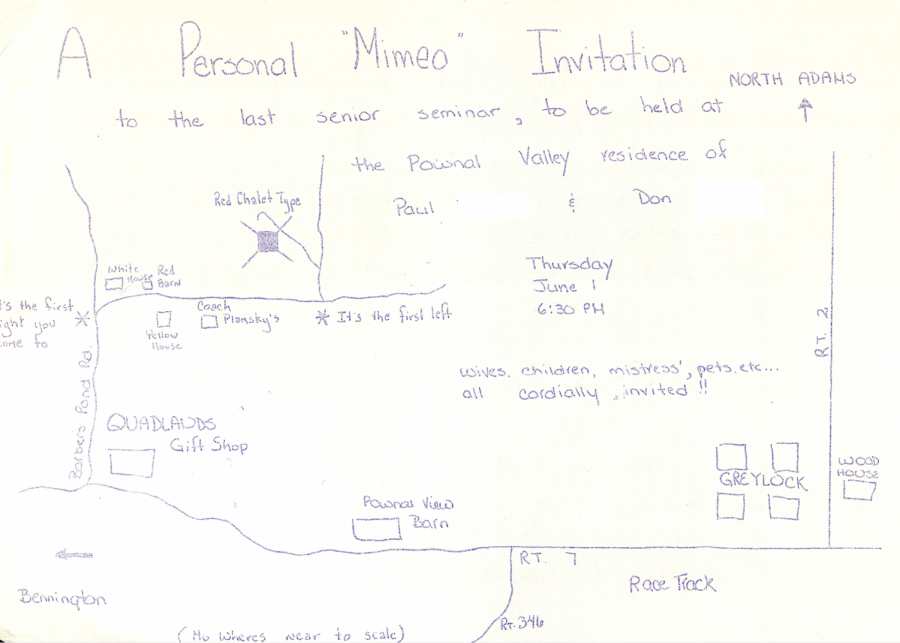 A Personal "Mimeo" Invitation
NORTH ADAMS
to the last senior seminar, to be held at
the Pownal Valley residence of
Paul & Don
Red Chalet Type
Thursday
June 1
6:30 PM
White House
Red Barn
Coach Plansky's
Yellow House
It's the first left
't's the first
ight you
come to
RT. 2
wives, children, mistress', pets, etc...
all cordially invited!!
Barbers Pond Rd.
QUADLANDS
Gift Shop
GREYLOCK
WOOD HOUSE
Pownas View
Barn
RT. 7
Race Track
Bennington
RT. 346
(No wheres near to scale)